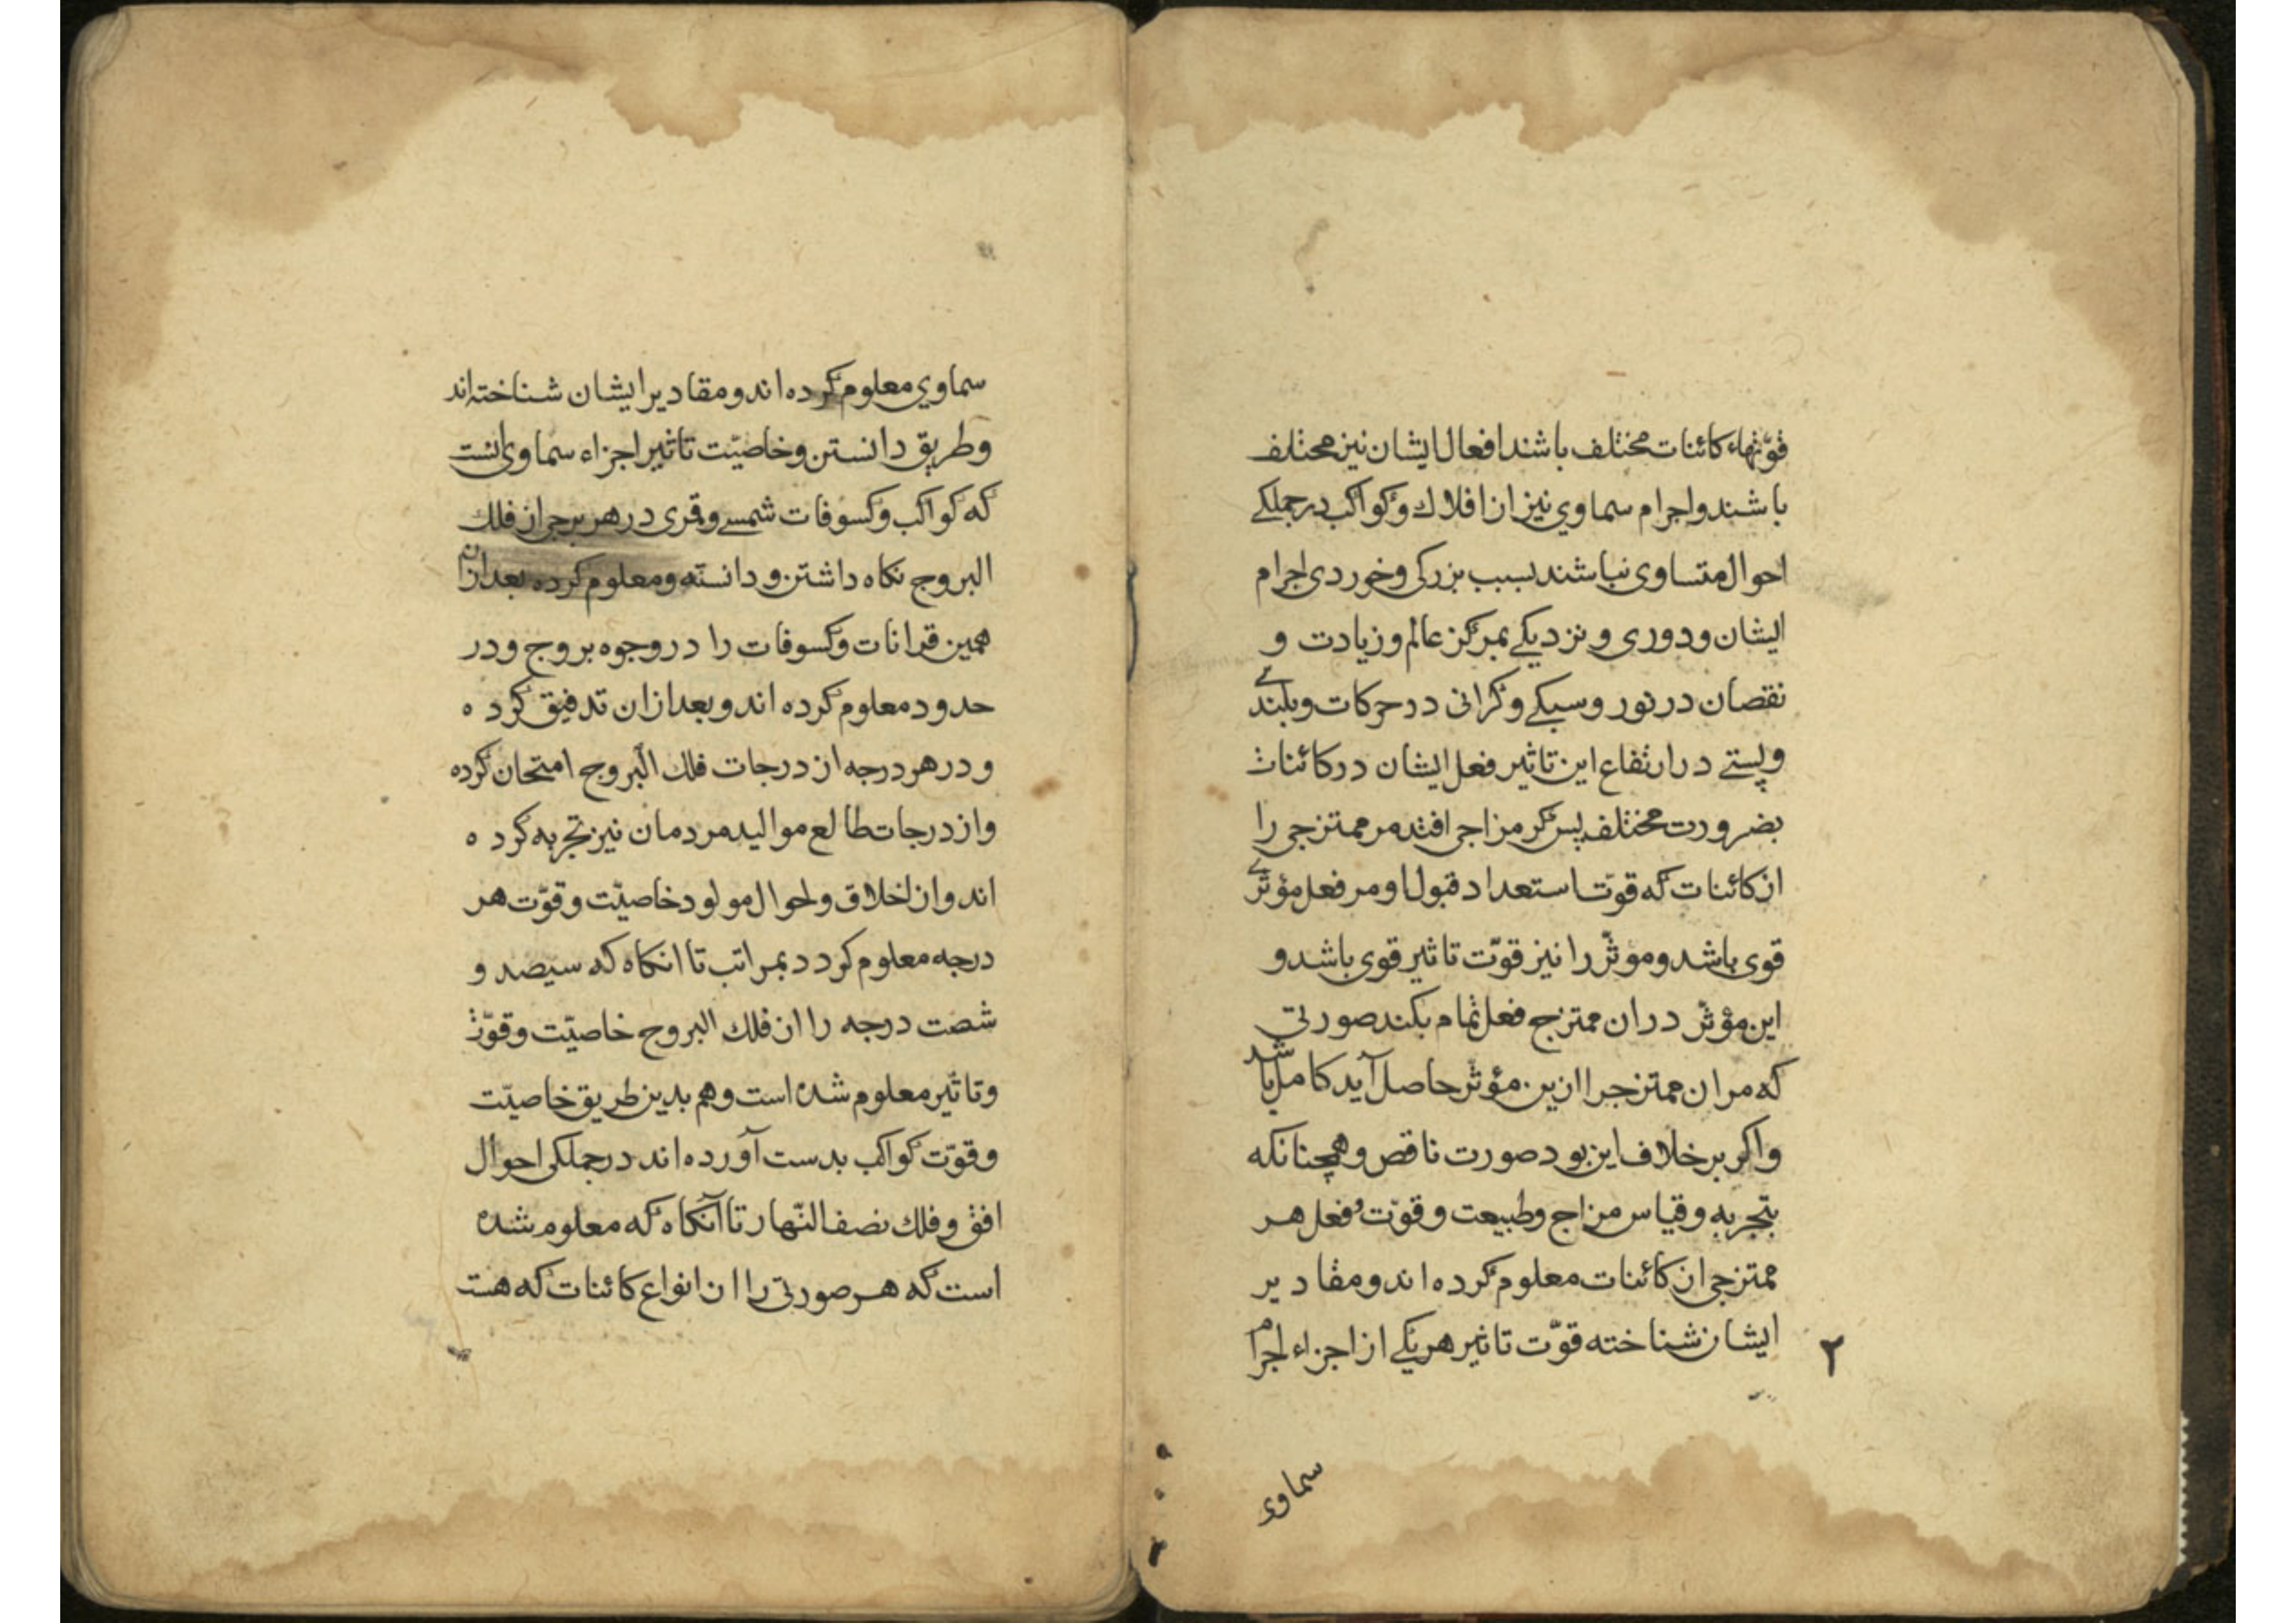 قوّتهاء کائنات مختلف باشند افعال ایشان نیز مختلف
باشند واجرام سماوي نیز از افلاك وکواکب درجملکے
احوال متساوی نباشند بسبب بزرکی وخوردی اجرام
ایشان ودوری ونزدیکے بمرکز عالم وزیادت و
نقصان درنور وسبکے وکرانی درحرکات وبلندے
وپستے درارتفاع این تاثیر فعل ایشان درکائنات
بضرورت مختلف پس کر مزاجی افتد مرممتزجی را
از کائنات که قوّت استعداد قبول او مر فعل مؤثّرے
قوی باشد ومؤثّر را نیز قوّت تاثیر قوی باشد و
این مؤثّر دران ممتزج فعل تمام بکند صورتی
که مران ممتزجرا ازین مؤثّر حاصل آید کامل باشد
واکر برخلاف این بود صورت ناقص وهمچنانکه
بتجربه وقیاس مزاج وطبیعت وقوّت وفعل هر
ممتزجی از کائنات معلوم کرده اند ومقادیر
ایشان شناخته قوّت تاثیر هریکے از اجزاء اجرام
٢
سماوي
سماوي معلوم کرده اند ومقادیر ایشان شناخته اند
وطریق دانستن وخاصیّت تاثیر اجزاء سماوی انست
که کواکب وکسوفات شمسے وقمری درهر برجی از فلك
البروج نکاه داشتن ودانسته ومعلوم کرده بعد ازان
همین قرانات وکسوفات را دروجوه بروج ودر
حدود معلوم کرده اند وبعد ازان تدقیق کرده
ودرهر درجه از درجات فلك البروج امتحان کرده
واز درجات طالع موالید مردمان نیز تجربه کرده
اند واز اخلاق واحوال مولود خاصیّت وقوّت هر
درجه معلوم کردد بمراتب تا انکاه که سیصد و
شصت درجه را از فلك البروج خاصیّت وقوّت
وتاثیر معلوم شده است وهم بدین طریق خاصیّت
وقوّت کواکب بدست آورده اند درجملکی احوال
افق وفلك نصف النّهار تا آنکاه که معلوم شده
است که هر صورتی را از انواع کائنات که هست